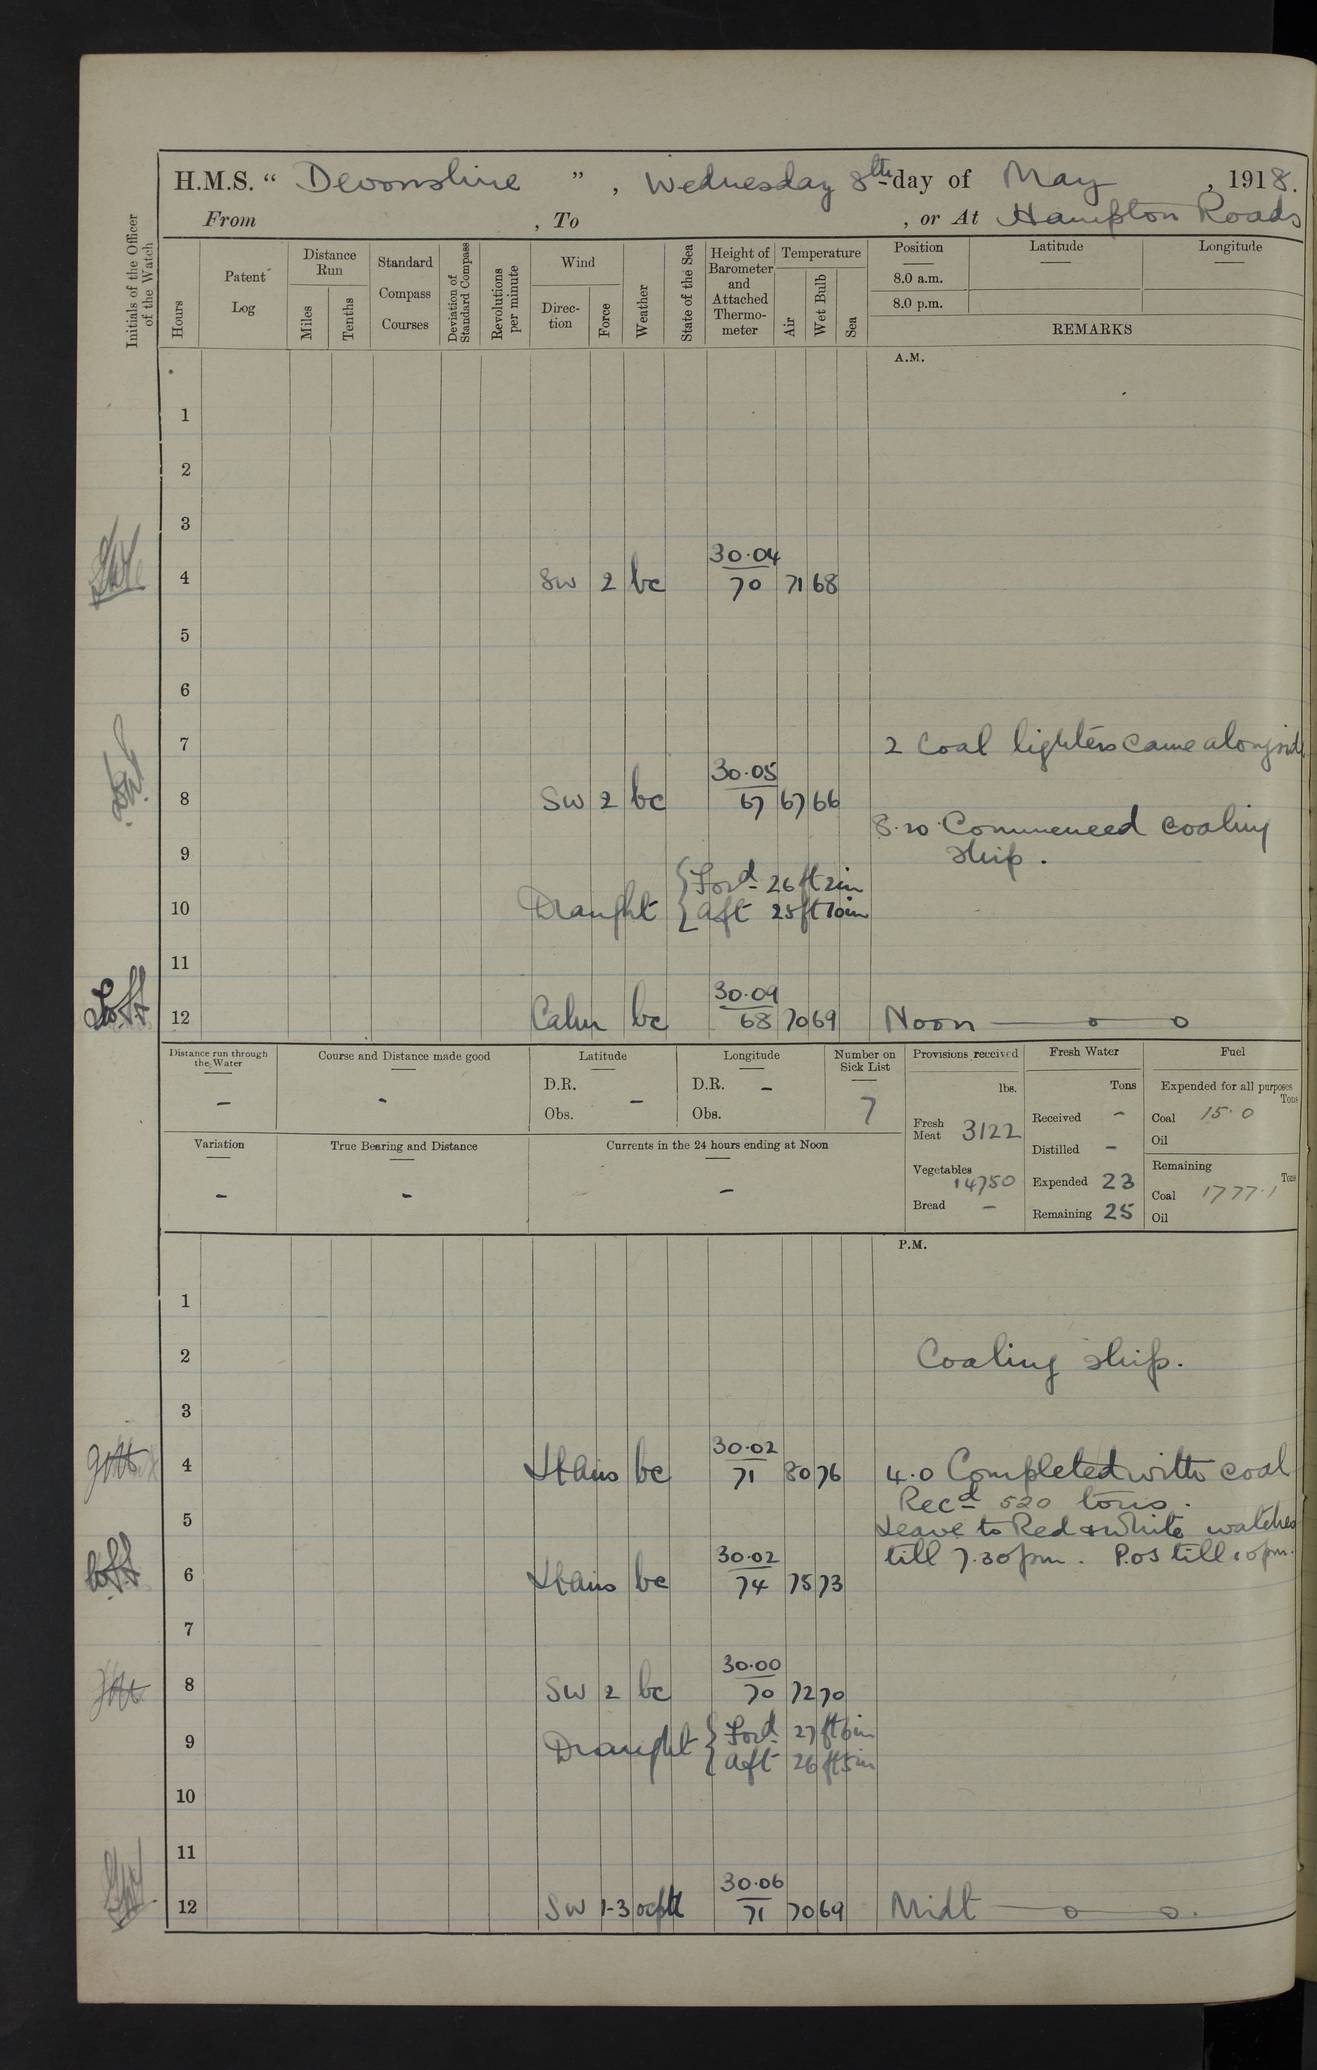 H.M.S. “ Devonshire ” , Wednesday 8th day of May , 1918.
From , To , or At Hampton Roads
Initials of the Officer of the Watch
Hours
Patent Log
Distance Run
Miles
Tenths
Standard Compass Courses
Deviation of Standard Compass
Revolutions per minute
Wind
Direc-tion
Force
Weather
State of the Sea
Height of Barometer and Attached Thermo-meter
Temperature
Air
Wet Bulb
Sea
Position Latitude Longitude
8.0 a.m.
8.0 p.m.
REMARKS
A.M.
1
2
3
30.04
4 SW 2 bc 70 71 68
5
6
7 2 Coal lighters came alongside
30.05
8 SW 2 bc 67 67 66
8.20 Commenced coaling
9 ship.
Draught { Ford 26 ft 2 in
10 { aft 25 ft 10 in
11
30.09
12 Calm bc 68 70 69 Noon
Distance run through the Water
Course and Distance made good
Latitude
Longitude
Number on Sick List
Provisions received
Fresh Water
Fuel
D.R. - D.R. -
Obs. Obs.
- -
7
lbs.
Tons
Expended for all purposes
Tons
Fresh Meat 3122
Received -
Coal 15.0
Oil
Variation
True Bearing and Distance
Currents in the 24 hours ending at Noon
- - -
Distilled -
Vegetables 14750
Remaining
Tons
Expended 23
Coal 1777.1
Bread -
Remaining 25
Oil
P.M.
1
2 Coaling ship.
3
30.02
4 Lt airs bc 71 80 76 4.0 Completed with coal
Recd 520 tons.
5 Leave to Red & White watches
30.02 till 7.30 pm. P.Os till 10 pm.
6 Lt airs bc 74 75 73
7
30.00
8 SW 2 bc 70 72 70
9 Draught { Ford 27 ft 6 in
{ aft 26 ft 5 in
10
11
30.06
12 SW 1-3 71 70 69 Midt